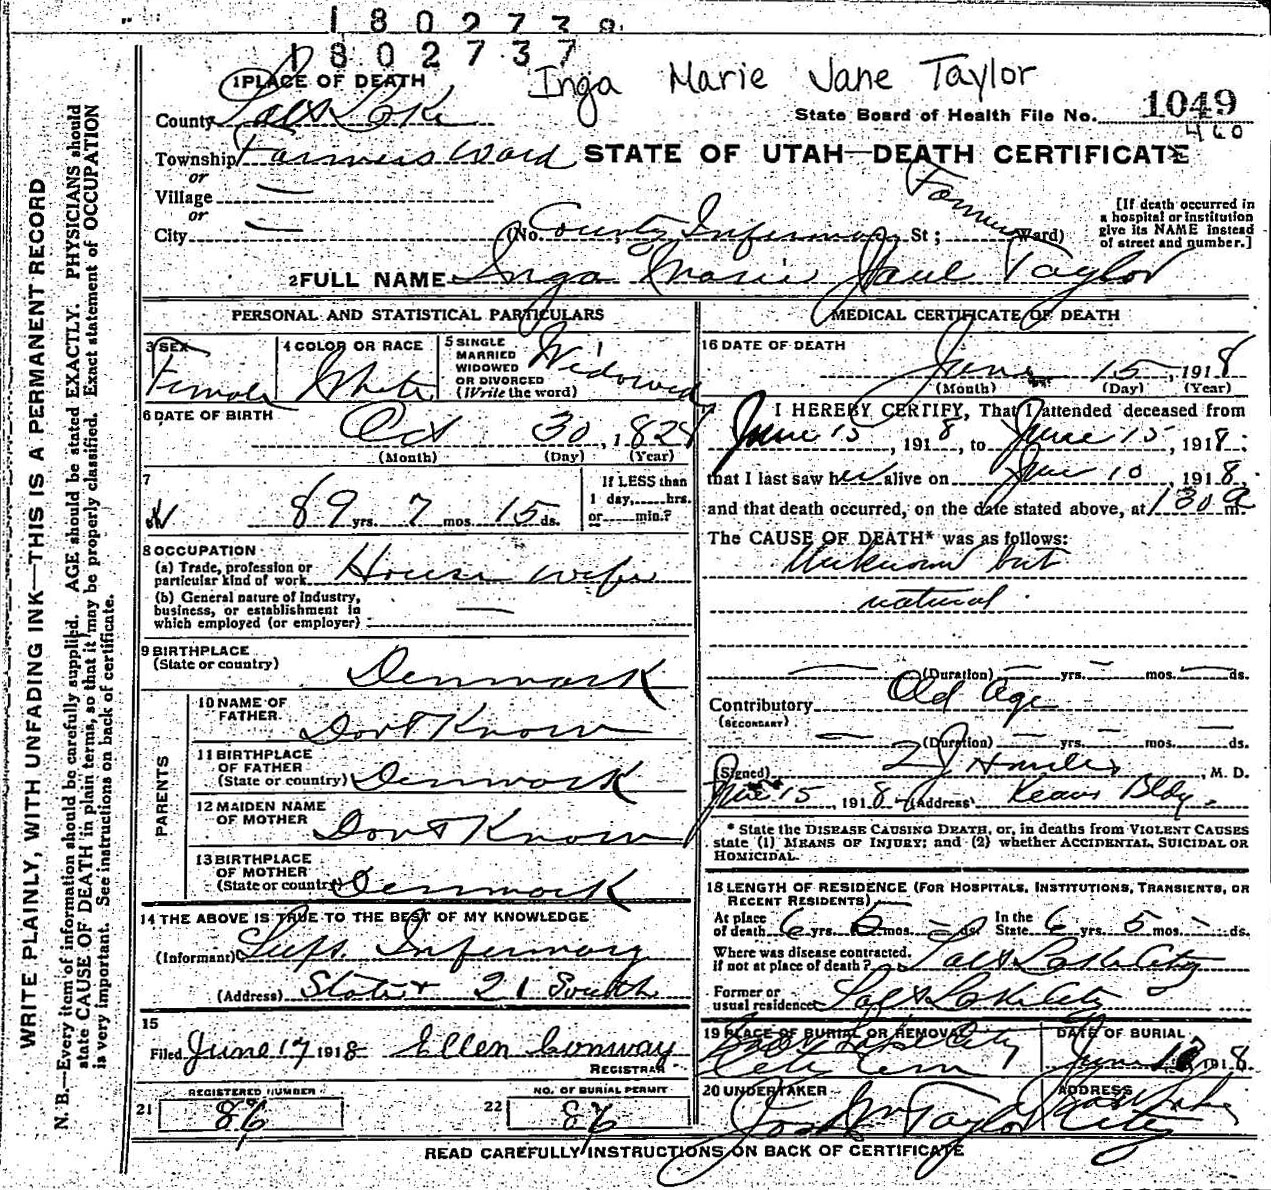 1802738
1802737
Inga Marie Jane Taylor
1 PLACE OF DEATH
County Salt Lake
State Board of Health File No. 1049
460
Township Farmers Ward
STATE OF UTAH—DEATH CERTIFICATE
or
Village —
or
City — (No. County Infirmary St; Farmers Ward)
[If death occurred in a hospital or institution give its NAME instead of street and number.]
2 FULL NAME Inga Marie Jane Taylor
PERSONAL AND STATISTICAL PARTICULARS
3 SEX Female
4 COLOR OR RACE White
5 SINGLE MARRIED WIDOWED OR DIVORCED (Write the word) Widowed
6 DATE OF BIRTH
Oct 30, 1828
(Month) (Day) (Year)
7
89 yrs. 7 mos. 15 ds.
If LESS than 1 day,.....hrs. or.....min.?
8 OCCUPATION
(a) Trade, profession or particular kind of work House wife
(b) General nature of industry, business, or establishment in which employed (or employer) —
9 BIRTHPLACE
(State or country) Denmark
PARENTS
10 NAME OF FATHER Dont Know
11 BIRTHPLACE OF FATHER (State or country) Denmark
12 MAIDEN NAME OF MOTHER Dont Know
13 BIRTHPLACE OF MOTHER (State or country) Denmark
14 THE ABOVE IS TRUE TO THE BEST OF MY KNOWLEDGE
(Informant) Supt. Infirmary
(Address) State & 21 South
15
Filed June 17 1918 Ellen Conway
REGISTRAR
REGISTERED NUMBER
21 86
NO. OF BURIAL PERMIT
22 86
MEDICAL CERTIFICATE OF DEATH
16 DATE OF DEATH
June 15, 1918
(Month) (Day) (Year)
I HEREBY CERTIFY, That I attended deceased from
June 15, 1918, to June 15, 1918;
that I last saw her alive on June 10, 1918,
and that death occurred, on the date stated above, at 130 a m.
The CAUSE OF DEATH* was as follows:
Unknown but
natural
(Duration) — yrs. — mos. — ds.
Contributory Old Age
(SECONDARY)
(Duration) — yrs. mos. ds.
(Signed) , M. D.
June 15, 1918 (Address) Kearns Bldg.
* State the DISEASE CAUSING DEATH, or, in deaths from VIOLENT CAUSES
state (1) MEANS OF INJURY; and (2) whether ACCIDENTAL, SUICIDAL OR
HOMICIDAL.
18 LENGTH OF RESIDENCE (FOR HOSPITALS, INSTITUTIONS, TRANSIENTS, OR
RECENT RESIDENTS)
At place of death 6 yrs. 5 mos. — ds. In the State 6 yrs. 5 mos. — ds.
Where was disease contracted, if not at place of death? Salt Lake City
Former or usual residence Salt Lake City
19 PLACE OF BURIAL OR REMOVAL
Salt Lake City Cem
DATE OF BURIAL
June 17, 1918
20 UNDERTAKER
Jos Wm Taylor
ADDRESS
Salt Lake City
READ CAREFULLY INSTRUCTIONS ON BACK OF CERTIFICATE
WRITE PLAINLY, WITH UNFADING INK—THIS IS A PERMANENT RECORD
N. B.—Every item of information should be carefully supplied. AGE should be stated EXACTLY. PHYSICIANS should
state CAUSE OF DEATH in plain terms, so that it may be properly classified. Exact statement of OCCUPATION
is very important. See instructions on back of certificate.